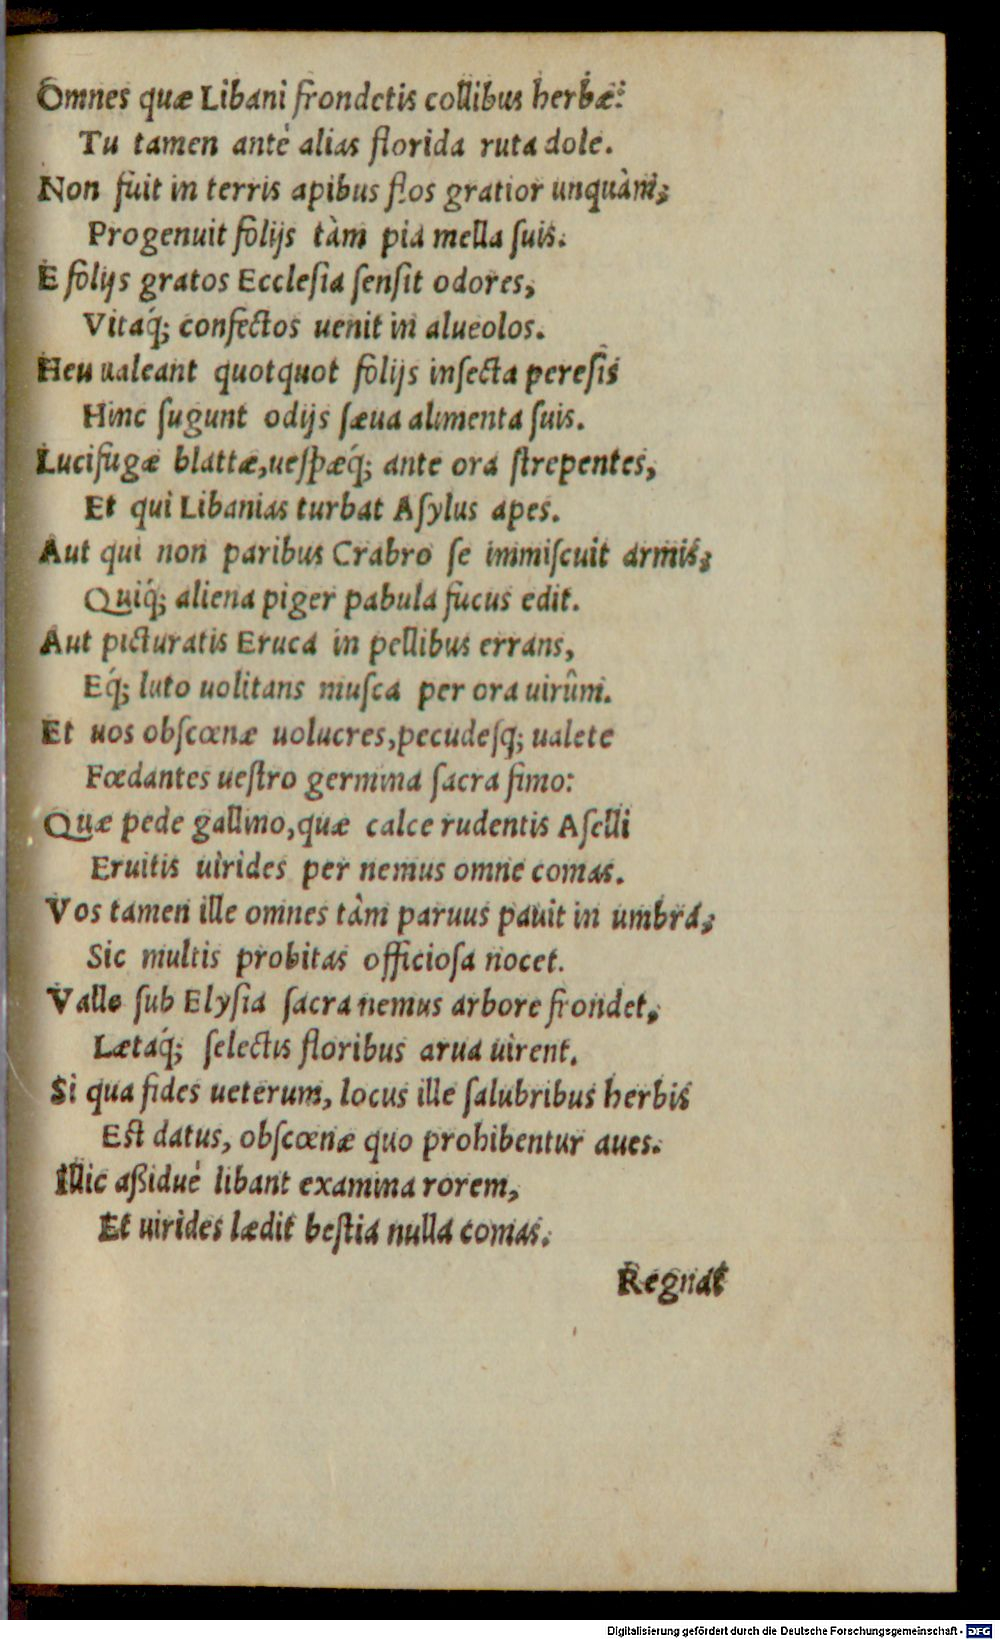 Omnes quæ Libani frondetis collibus herbæ:
Tu tamen antè alias florida ruta dole.
Non fuit in terris apibus flos gratior unquàm,
Progenuit folijs tàm pia mella ſuis.
E folijs gratos Eccleſia ſenſit odores,
Vitaq́; confectos uenit in alueolos.
Heu ualeant quotquot folijs inſecta pereſis
Hinc ſugunt odijs ſæua alimenta ſuis.
Lucifugæ blattæ,ueſpæq́; ante ora ſtrepentes,
Et qui Libanias turbat Aſylus apes.
Aut qui non paribus Crabro ſe immiſcuit armis,
Quiq́; aliena piger pabula fucus edit.
Aut picturatis Eruca in pellibus errans,
Eq́; luto uolitans muſca per ora uirûm.
Et uos obſcœnæ uolucres,pecudeſq́; ualete
Fœdantes ueſtro germina ſacra fimo:
Quæ pede gallino,quæ calce rudentis Aſelli
Eruitis uirides per nemus omne comas.
Vos tamen ille omnes tàm paruus pauit in umbra,
Sic multis probitas officioſa nocet.
Valle ſub Elyſia ſacra nemus arbore frondet,
Lætaq́; ſelectis floribus arua uirent.
Si qua fides ueterum, locus ille ſalubribus herbis
Eſt datus, obſcœnæ quo prohibentur aues.
Illic aßiduè libant examina rorem,
Et uirides lædit beſtia nulla comas.
Regnat
Digitalisierung gefördert durch die Deutsche Forschungsgemeinschaft - DFG